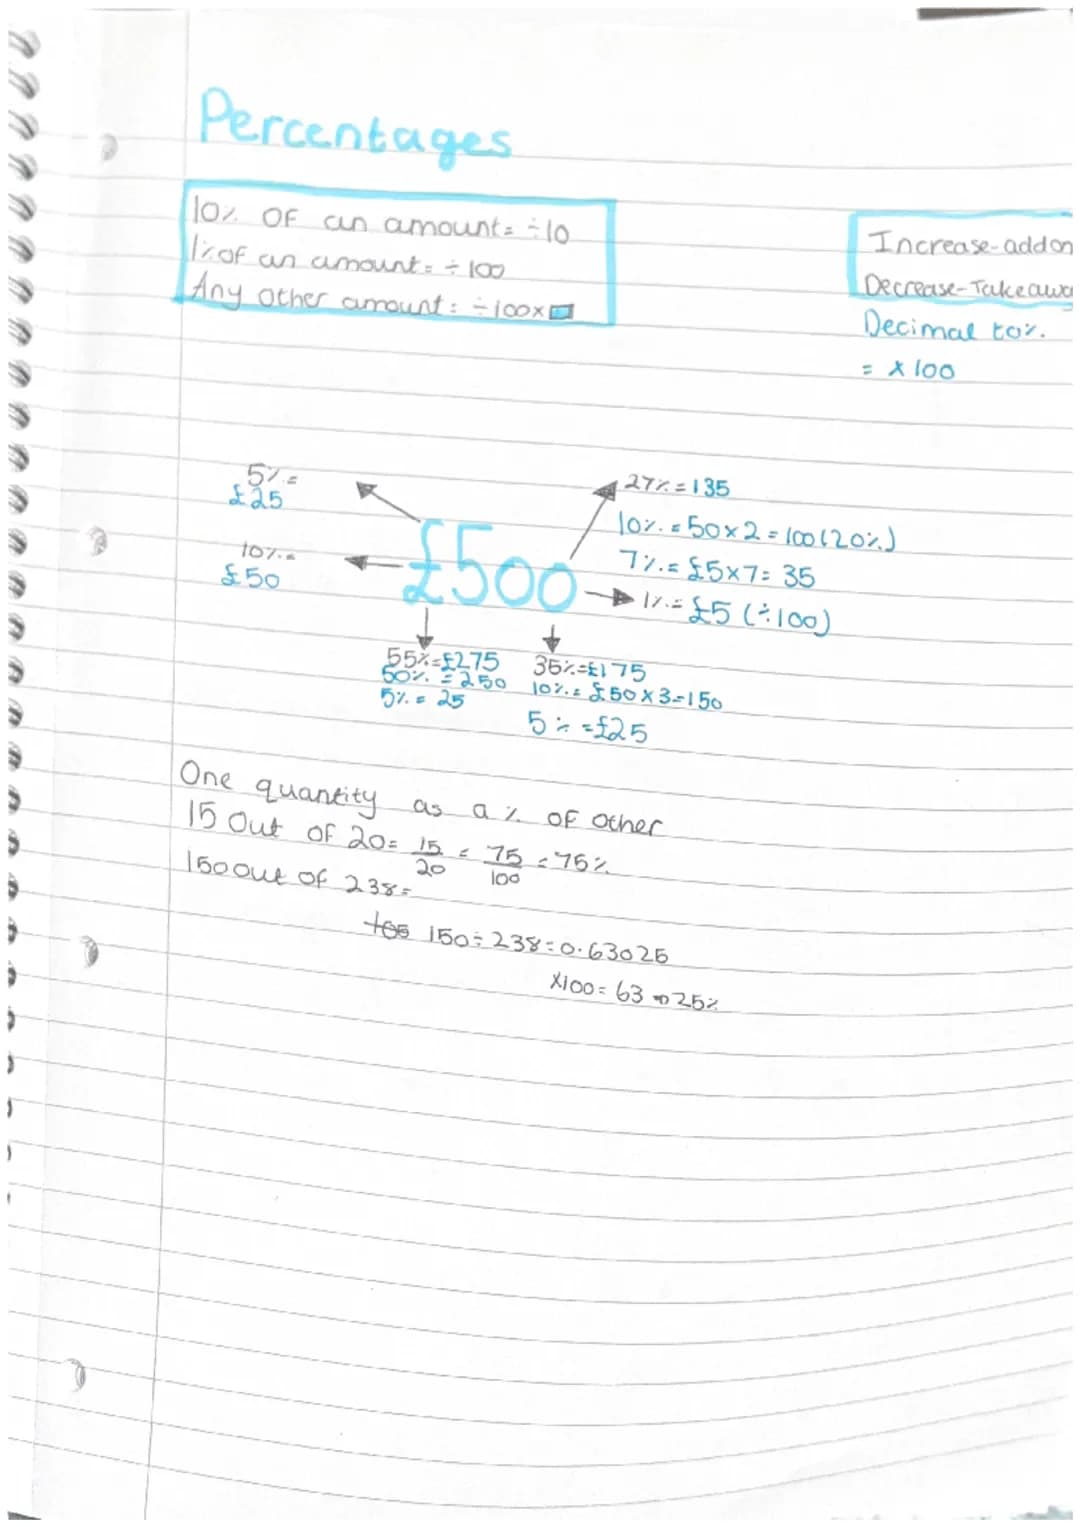 Percentages
10% OF an amount= ÷10
1% of an amount= ÷ 100
Any other amount: ÷100x
Increase-add on
Decrease-Take awa
Decimal to %.
= x 100
5% =
£25
10% =
£50
£500
27% = 135
10% = 50x2 = 100(20%)
7% = £5x7= 35
1% = £5 (÷100)
55%=£275
50% = 250
5% = 25
35%=£175
10% = £50x3=150
5% =£25
One quantity as a % OF other
15 Out of 20= 15/20 = 75/100 =75%
150 out of 238=
150÷238=0.63025
x100= 63 025%